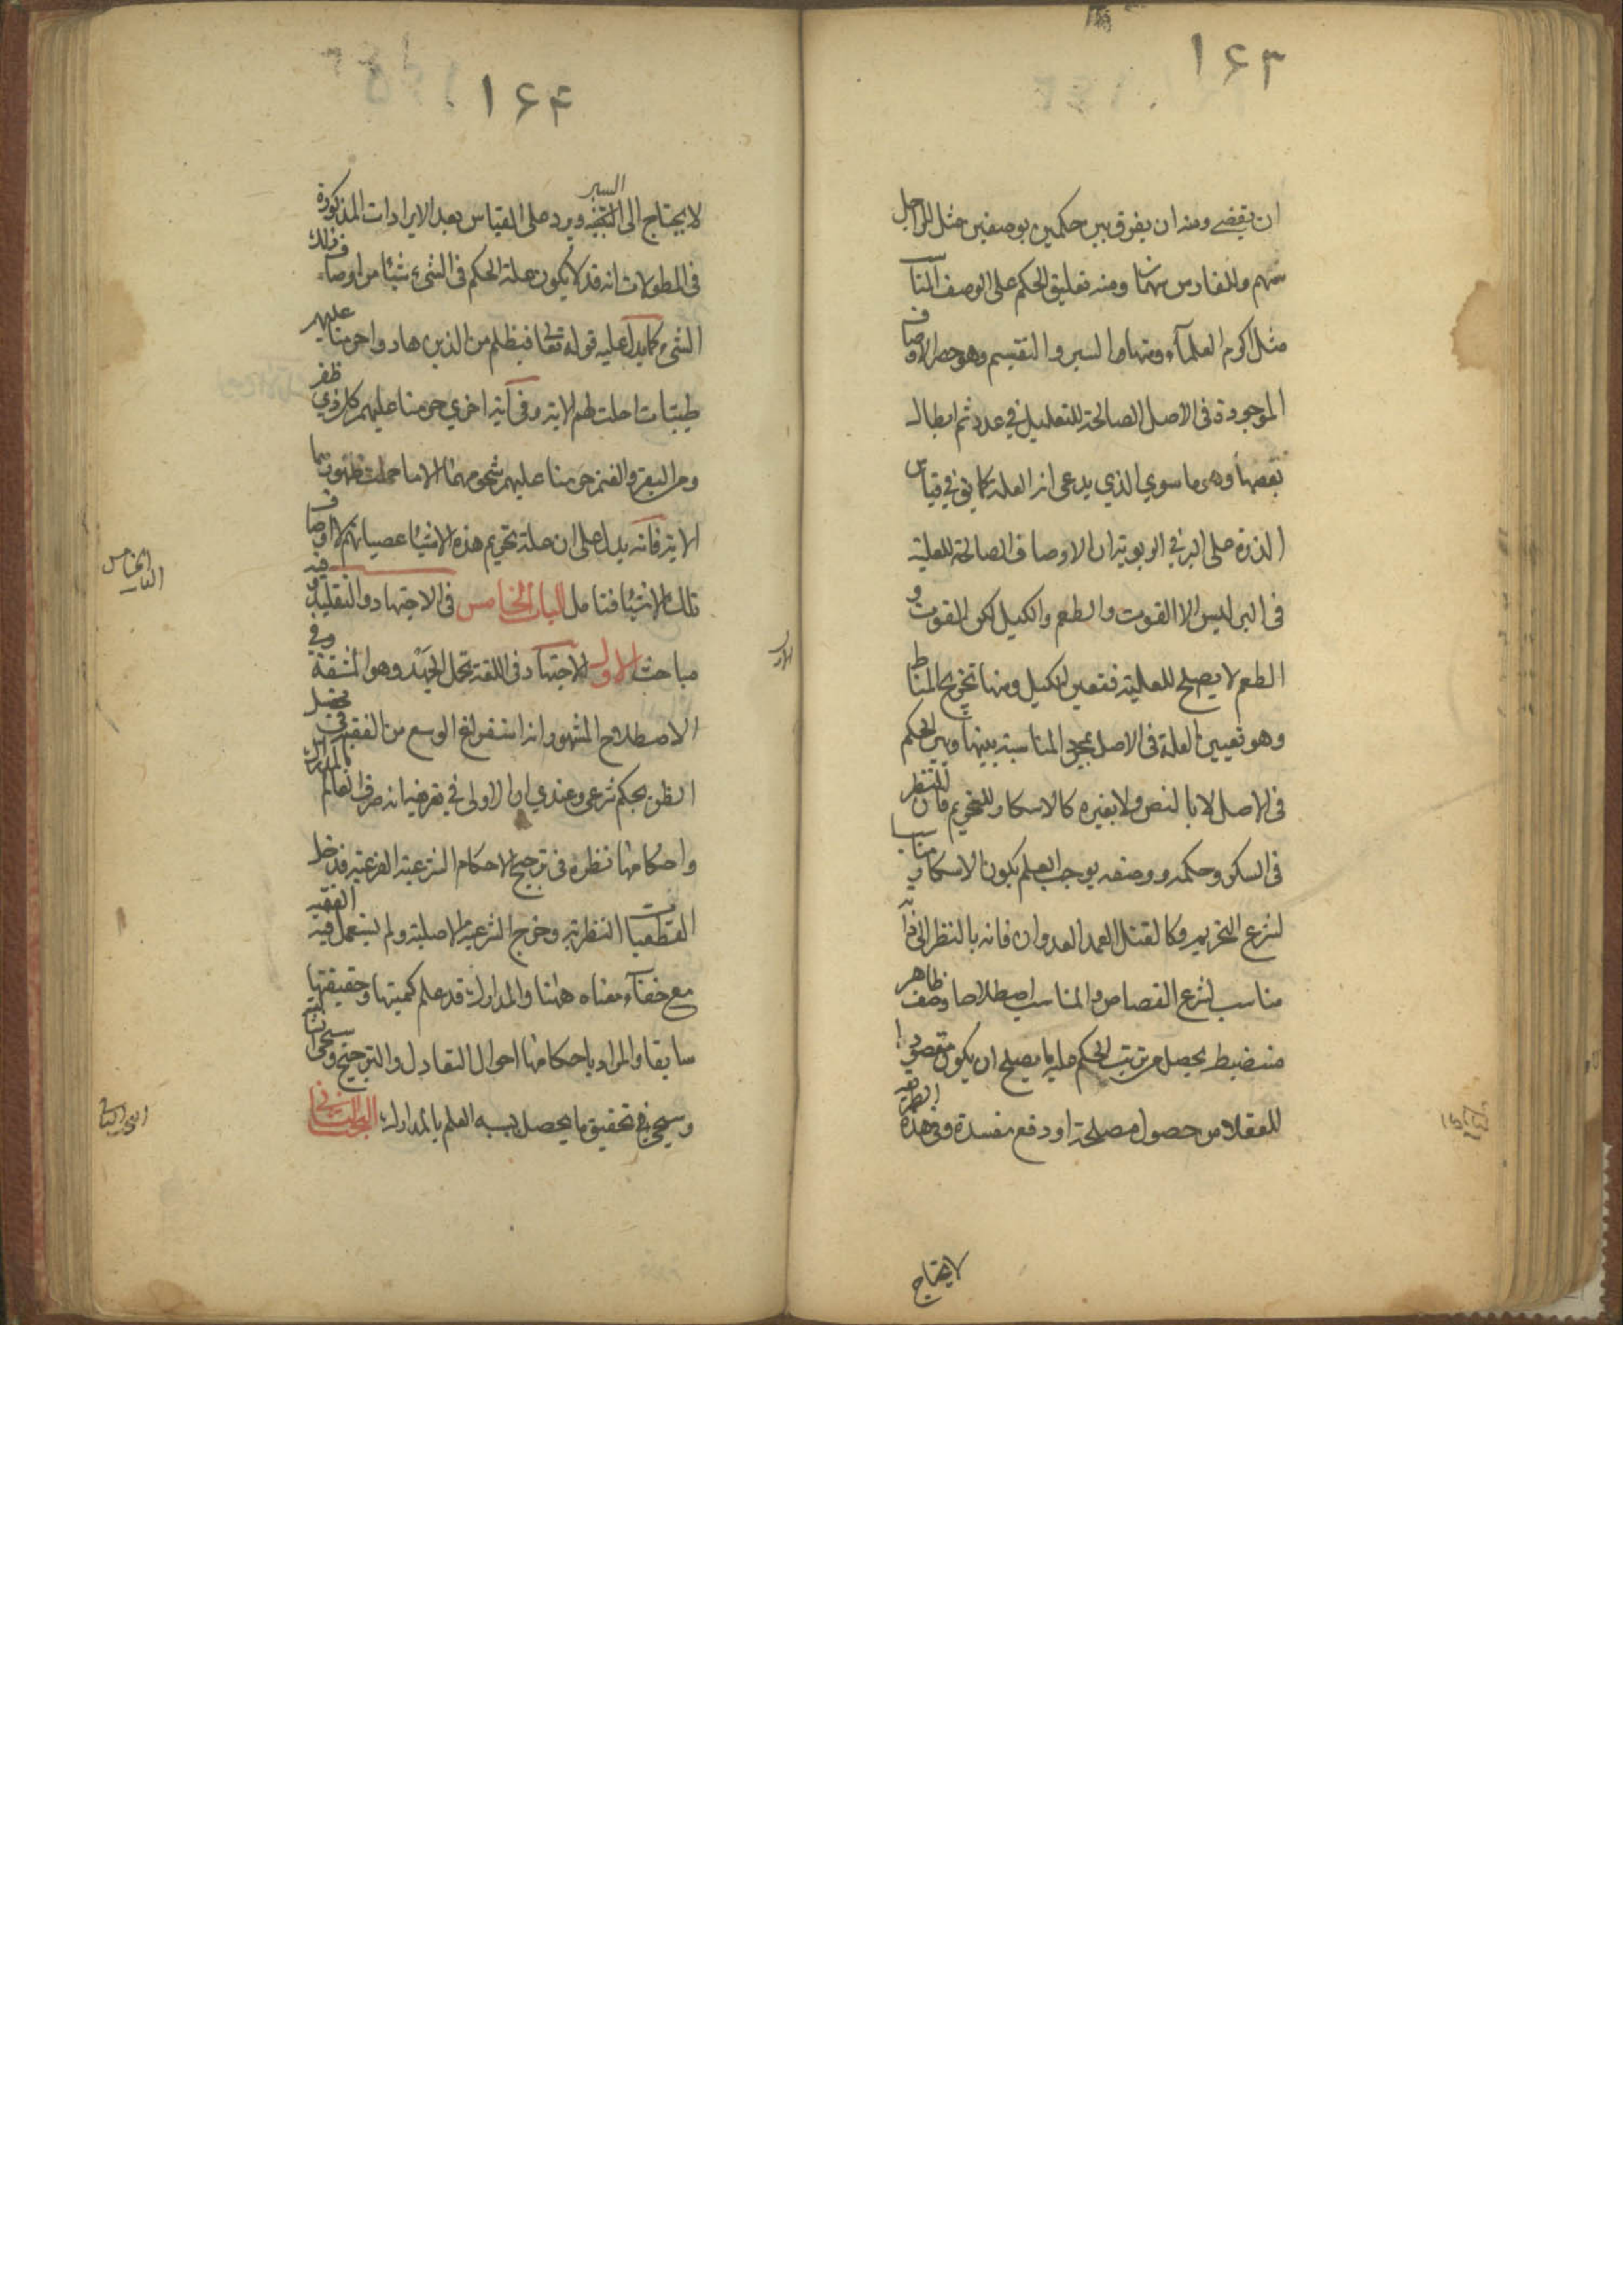 ١٦٣
ان يقضے ومنه ان يفرق بين حكمين بوصفين مثل للراجل
سهم وللفارس سهمان ومنه تعليق الحكم على الوصف المناسب
مثل اكرم العلمآء ومنها السبر والتقسيم وهو حصر الاوصاف
الموجودة فى الاصل الصالحة للتعليل في عدد ثم ابطال
بعضها وهى ما سوي الذي يدعى انه العلة كما يق في قياس
الذرة على البر في الربوية ان الاوصاف الصالحة للعلية
فى البر ليس الا القوت والطعم والكيل لكن القوت و
الطعم لا يصلح للعلية فتعين الكيل ومنها تخريج المناط
وهو تعيين العلة فى الاصل بمجرد المناسبة بينها وبين الحكم
فى الاصل لا بالنص ولا بغيره كالاسكار للتحريم فان النظر
فى السكر وحكمه ووصفه يوجب العلم بكون الاسكار مناسبا
لشرع التحريم وكالقتل العمد العدوان فانه بالنظر الى ذاته
مناسب لشرع القصاص والمناسب اصطلاحا وصف ظاهر
منضبط يحصل من ترتيب الحكم عليه ما يصلح ان يكون مقصودا
للعقلا من حصول مصلحة او دفع مفسدة وفى هذه الطريقة
لا يحتاج
١٦٤
لا يحتاج الى السبر ويرد على القياس بعد الايرادات المذكورة
فى المطولات انه قد لا يكون علة الحكم فى الشىء شيئا من اوصاف ذلك
الشىء كما يدل عليه قوله تعا فبظلم من الذين هادوا حرمنا عليهم
طيبات احلت لهم الاية وفى آية اخرى حرمنا عليهم كل ذي ظفر
ومن البقر والغنم حرمنا عليهم شحومهما الا ما حملت ظهورهما
الاية فانه يدل على ان علة تحريم هذه الاشيا عصيانهم لا اوصاف
تلك الاشيا فتامل الباب الخامس فى الاجتهاد والتقليد وفيه
مباحث الاول الاجتهاد فى اللغة تحمل الجهد وهو المشقة وفي
الاصطلاح المشهور انه استفراغ الوسع من الفقيه في تحصيل
الظن بحكم شرعى وعندي ان الاولى في تعريفه انه صرف العالم بالمدارك
واحكامها نظره فى ترجيح الاحكام الشرعية الفرعية فدخل
القطعيات النظرية وخرج الشرعية الاصلية ولم يستعمل فيه الفقيه
مع خفآء معناه ههنا والمدارك قد علم كميتها وحقيقتها
سابقا والمراد باحكامها احوال التعادل والترجيح وسيجئ
وسيجئ في تحقيق ما يحصل بسببه العلم بالمدارك البحث الثاني
الباب الخامس
الاول
البحث الثانى